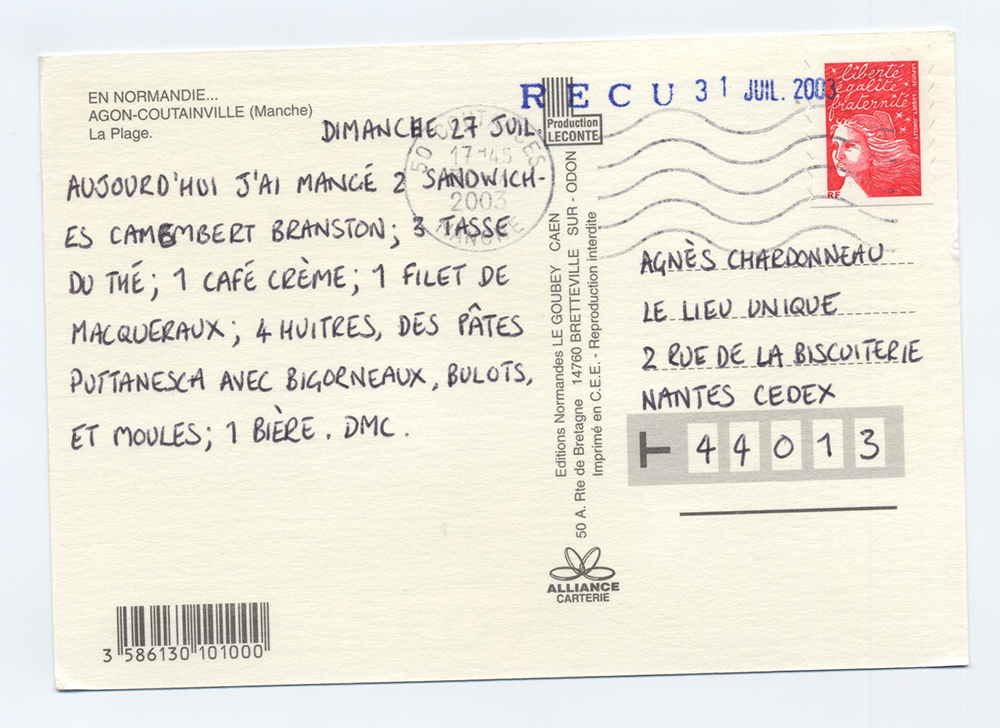 EN NORMANDIE...
AGON-COUTAINVILLE (Manche)
La Plage.
DIMANCHE 27 JUIL.
AUJOURD'HUI J'AI MANGÉ 2 SANDWICH-
ES CAMEMBERT BRANSTON; 3 TASSE
DU THÉ; 1 CAFÉ CRÈME; 1 FILET DE
MACQUERAUX; 4 HUITRES, DES PÂTES
PUTTANESCA AVEC BIGORNEAUX, BULOTS,
ET MOULES; 1 BIÈRE. DMC.
3 586130 101000
17-45
2003
MANCHE
RECU 31 JUIL. 2003
Production
LECONTE
Editions Normandes LE GOUBEY CAEN
50 A. Rte de Bretagne 14760 BRETTEVILLE SUR - ODON
Imprimé en C.E.E. - Reproduction interdite
ALLIANCE
CARTERIE
liberté
égalité
fraternité
RF
AGNÈS CHARDONNEAU
LE LIEU UNIQUE
2 RUE DE LA BISCUITERIE
NANTES CEDEX
44013